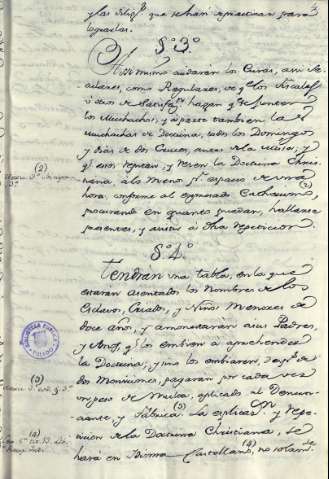 y las dilig.s que se han de practicar para
lograrlas.
§.º 3.º
Asi mismo cuidarán los Curas, asi Se-
culares, como Regulares, de q.e los Fiscales
hagan q.e se junten
los Muchachos, y aparte tambien las
Muchachas de Doctrina, todos los Domingos
y dias de dos Cruces, antes de la Misa; y
q.e esos repitan, y rezen la Doctrina Chris-
tiana, à lo menos p.r espacio de una
hora, conforme al expresado Cathecismo,
procurando en quanto puedan, hallarse
presentes, y asistir à dha repeticion
(2)
3.º
§.º 4.º
Tendran una tabla, en la que
estarán asentados los Nombres de los
Esclavos, Criados, y Niños Menores de
doce años, y amonestarán à sus Padres,
y Amos, q.e los embien à aprehender
la Doctrina; y si no los embiaren, desp.s de
dos Moniciones, pagarán por cada vez
un peso de Multa, aplicado al Denun-
ciante, y Fábrica (3) La explicac.on y repe-
ticion de la Doctrina Christiana, se
hará en Idioma Castellano, (4) no solam.te
(3)
(4)
BIBLIOTECA PUBLICA
TOLEDO